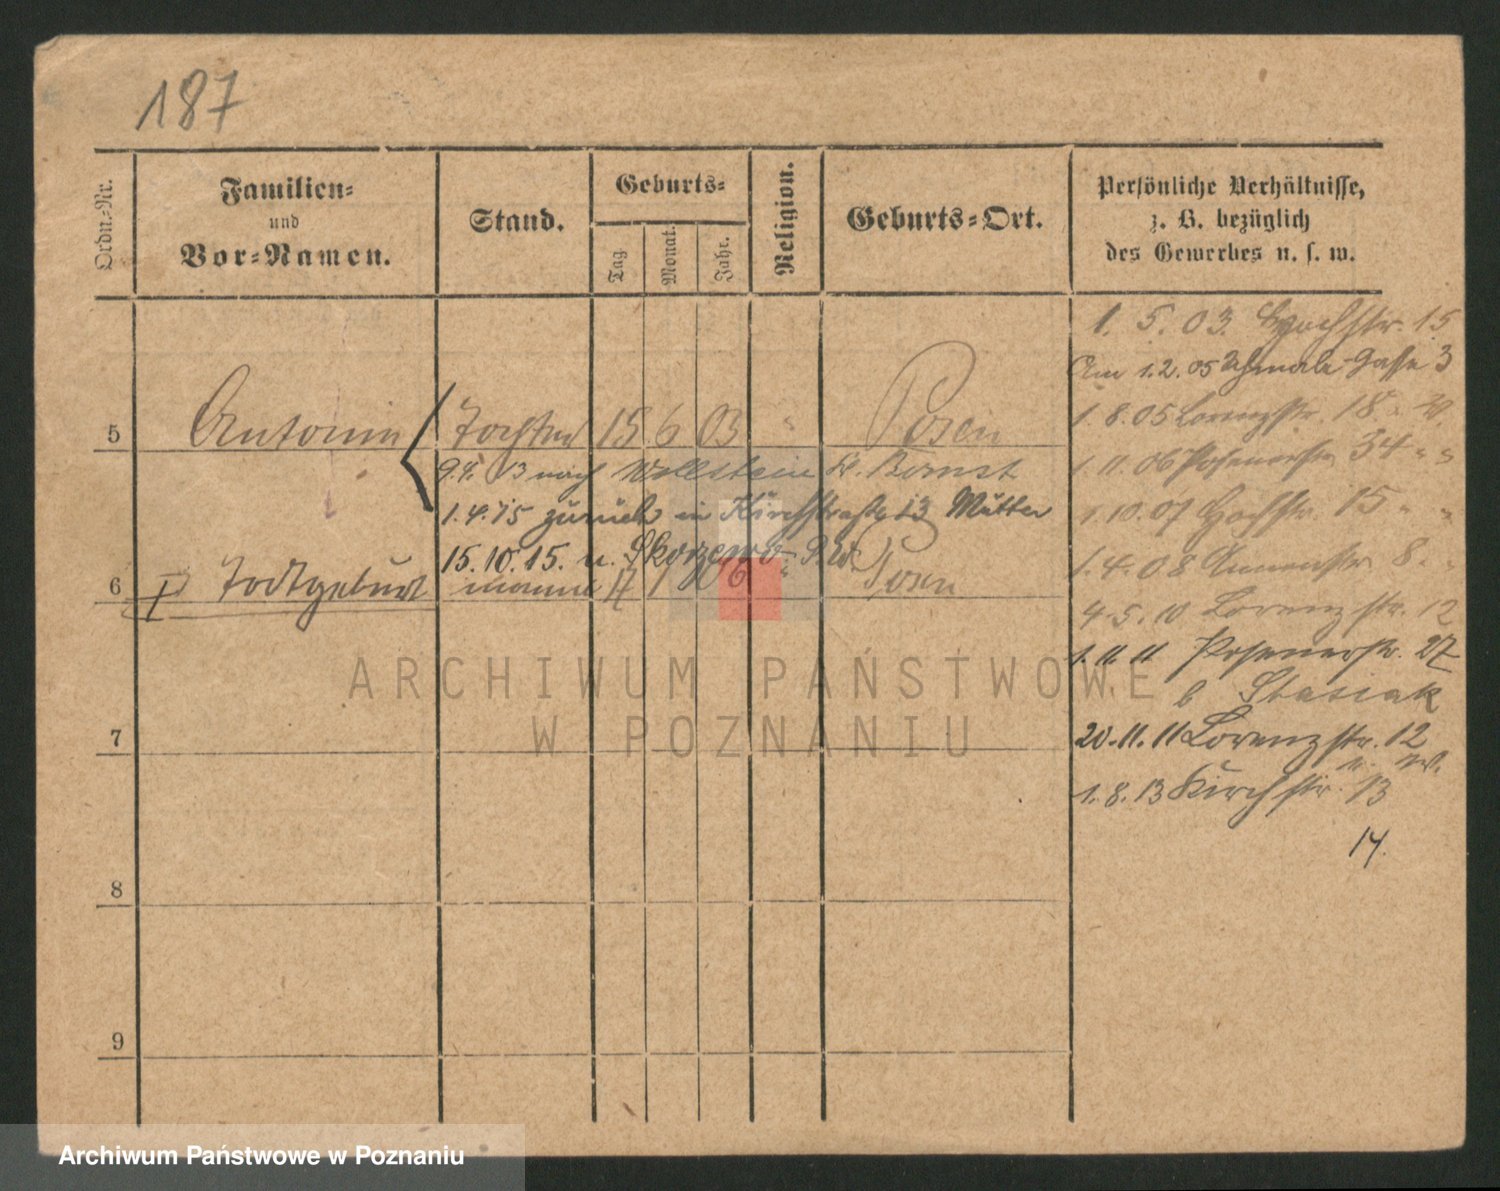 187
Ordn.-Nr.
Familien-
und
Vor-Namen.
Stand.
Geburts-
Tag
Monat.
Jahr.
Religion.
Geburts-Ort.
Persönliche Verhältnisse,
z. B. bezüglich
des Gewerbes u. s. w.
1. 5. 03. Hochstr. 15
Am 1.2.05 Schmale Gasse 3
1.8.05 Lorenzstr. 18
1.11.06 Posenerstr. 34 " "
1.10.07 Hochstr. 15 " "
1.4.08 8. "
4.5.10 Lorenzstr. 12
1.11.11 Posenerstr. 27
b Stasiak
20.11.11 Lorenzstr. 12
1.8.13 Kirchstr. 13
14.
5 Antonin Tochter 15 6 03 " Posen
9.4.13 nach Wollstein Kr. Bomst
1.4.15 zurück in Kirchstraße 13 Mutter
15.10.15. n. Skorzewo
6 Todtgeburt 1 06 " Posen
7
8
9
ARCHIWUM PAŃSTWOWE
W POZNANIU
Archiwum Państwowe w Poznaniu